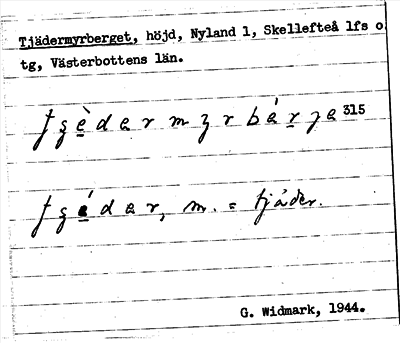 Tjädermyrberget, höjd, Nyland 1, Skellefteå lfs o.
tg, Västerbottens län.
tʒèdermyrbárʒe 315
tʒéder, m. = tjäder.
G. Widmark, 1944.